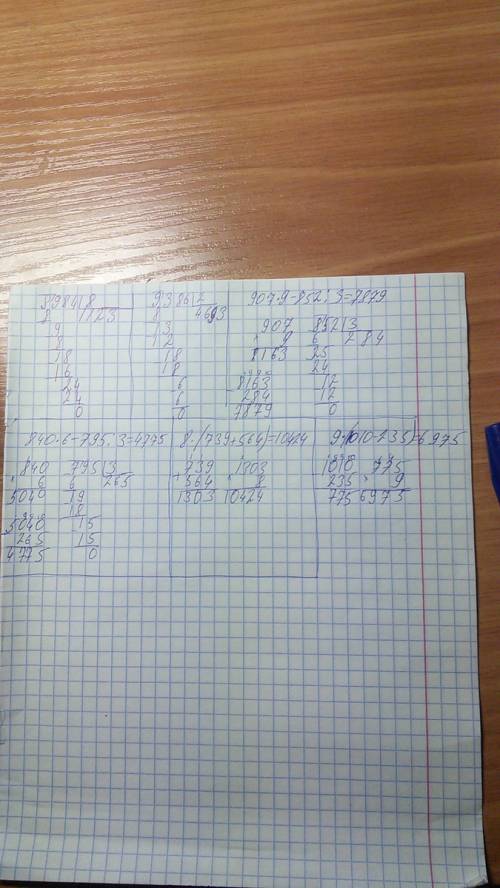 8984|8
8 /123
9
8
18
16
24
24
0
9386|2
8 4693
13
12
18
18
6
6
0
907·9-852:3=7879
907
9
8163
8163
284
7879
852|3
6 284
25
24
12
12
0
840·6-795:3=4775
840
6
5040
5040
265
4775
795|3
6 265
19
18
15
15
0
8·(739+564)=10424
739
564
1303
1303
8
10424
9·(1010-235)=6975
1010
235
775
775
9
6975